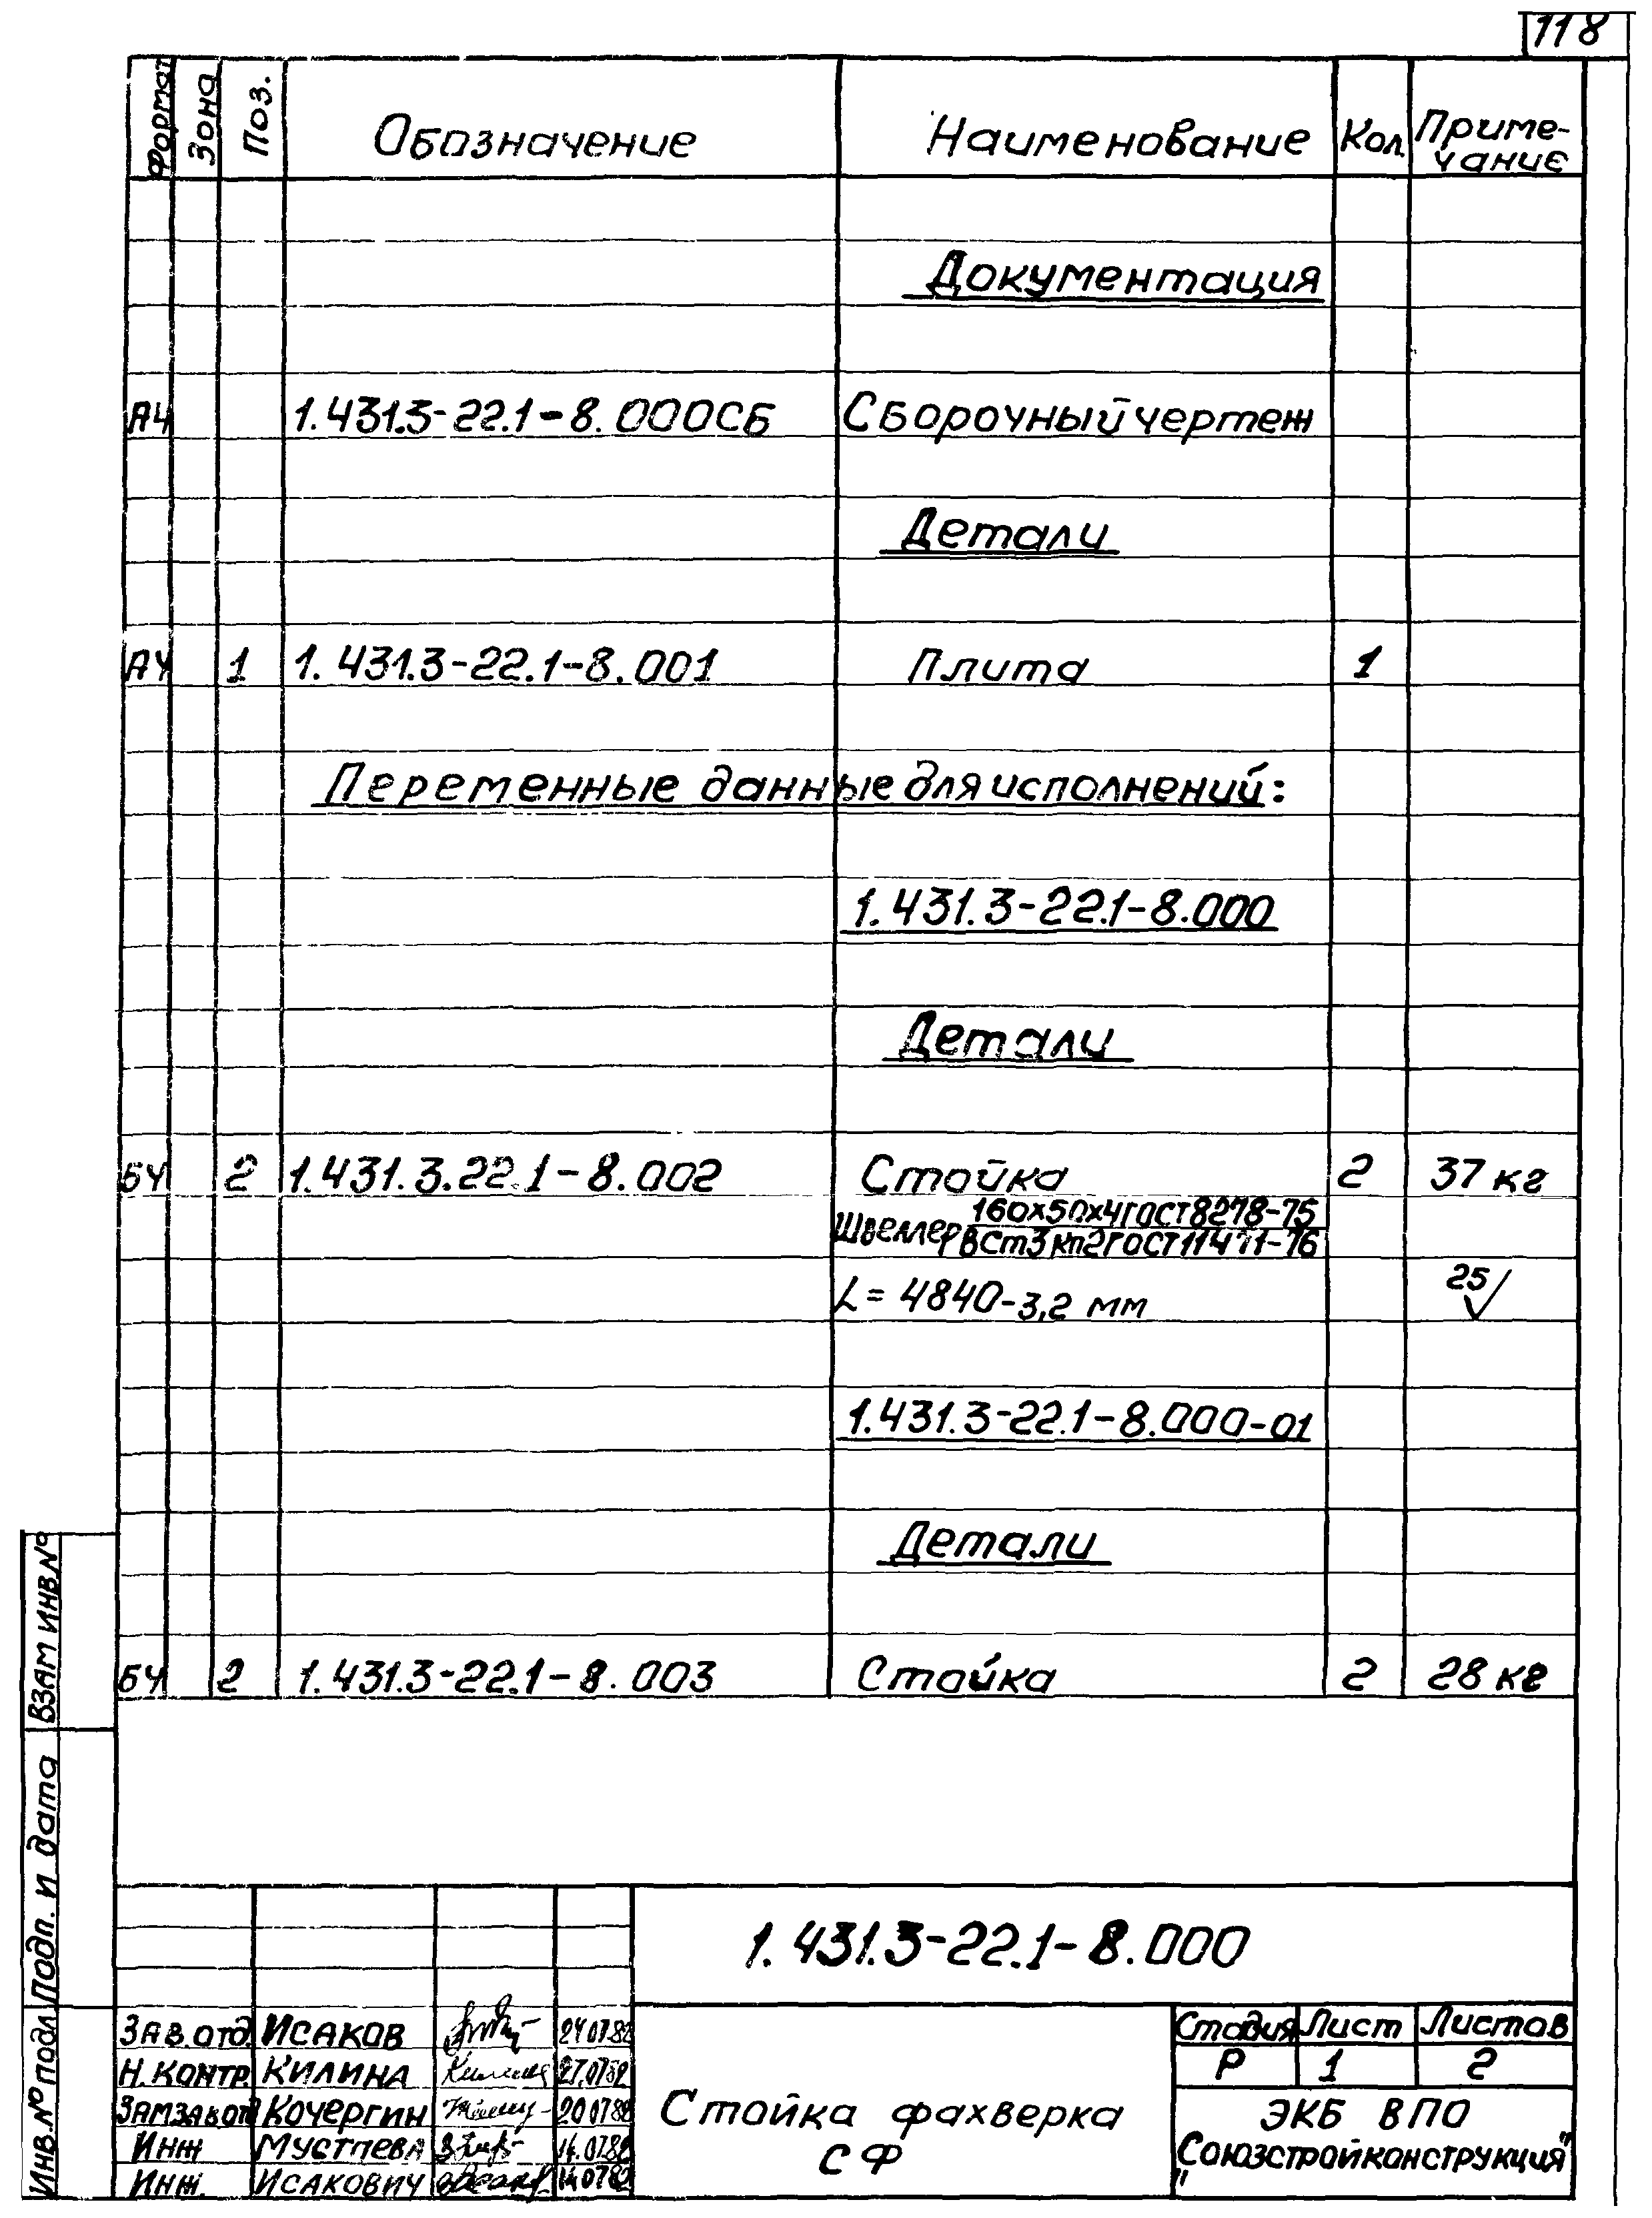 118
Формат Зона Поз. Обозначение Наименование Кол. Примечание
Документация
А4 1.431.3-22.1-8.000СБ Сборочный чертеж
Детали
А4 1 1.431.3-22.1-8.001 Плита 1
Переменные данные для исполнений:
1.431.3-22.1-8.000
Детали
БЧ 2 1.431.3.22.1-8.002 Стойка 2 37 кг
160х50х4ГОСТ8278-75
Швеллер ВСт3кп2ГОСТ11471-76
L= 4840-3,2 мм 25
1.431.3-22.1-8.000-01
Детали
БЧ 2 1.431.3-22.1-8.003 Стойка 2 28 кг
Взам инв.№
Подп. и дата
Инв.№ подл
1.431.3-22.1-8.000
Зав.отд. Исаков 24.07.82
Н.контр. Килина 27.07.82
Зам.зав.отд Кочергин 20.07.82
Инж Мустпева 14.07.82
Инж. Исакович 14.07.82
Стойка фахверка
СФ
Стадия Лист Листов
Р 1 2
ЭКБ ВПО
"Союзстройконструкция"